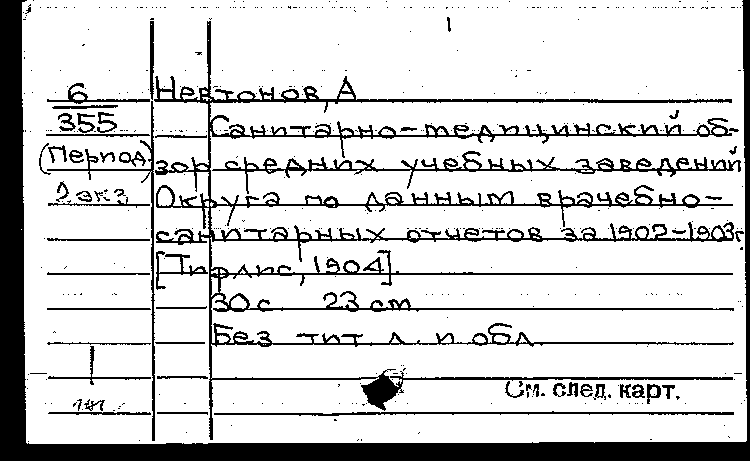 6
355
(Период)
2 экз
Невтонов, А
Санитарно-медицинский об-
зор средних учебных заведений
Округа по данным врачебно-
санитарных отчетов за 1902-1903г.
[Тифлис, 1904].
30 с. 23 см.
Без тит. л. и обл.
См. след. карт.